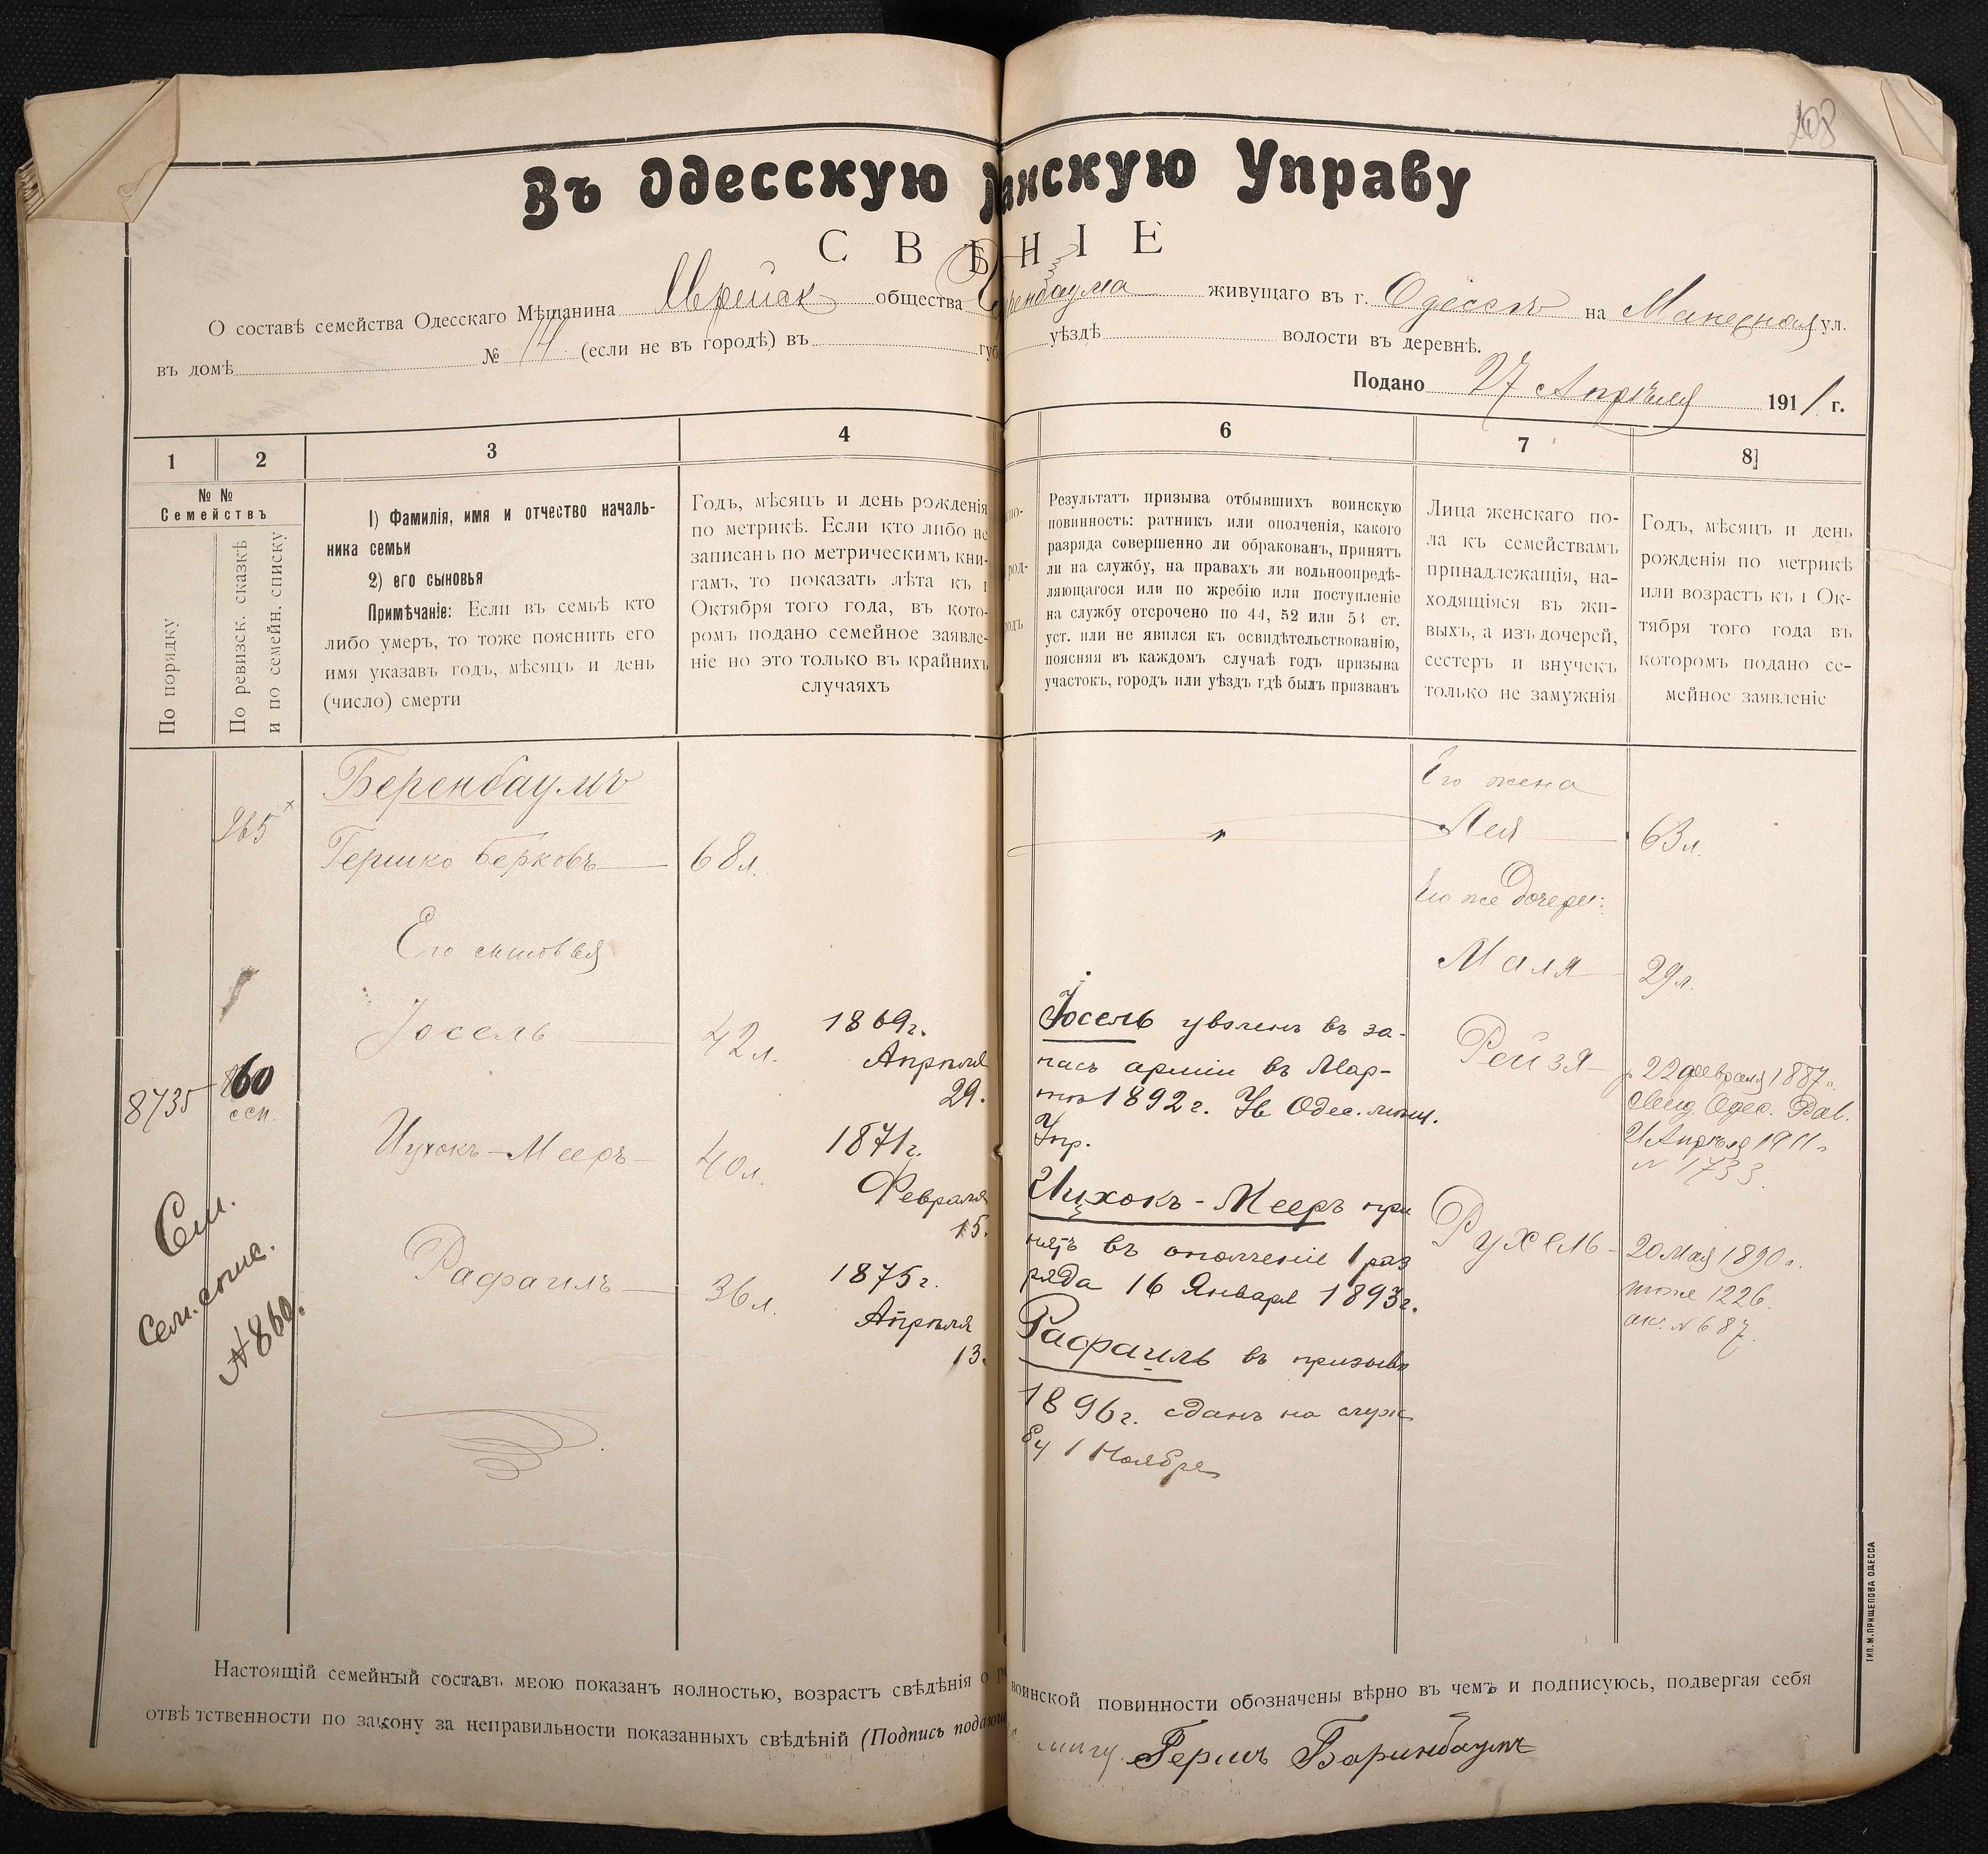 Въ Одесскую
анскую Управу
СВѢ
НІЕ
О составѣ семейства Одесскаго Мѣщанина Еврейск общества
ренбаума живущаго въ г. Одессѣ на Манежная ул.
въ домѣ № 14 (если не въ городѣ) въ губ
уѣздѣ волости въ деревнѣ.
Подано 27 Апрѣля 1911 г.
1 2 3 4
6 7 8
№ №
Семействъ
По порядку
По ревизск. сказкѣ
и по семейн. списку
1) Фамилія, имя и отчество началь-
ника семьи
2) его сыновья
Примѣчаніе: Если въ семьѣ кто
либо умеръ, то тоже пояснить его
имя указавъ годъ, мѣсяцъ и день
(число) смерти
Годъ, мѣсяцъ и день рожденія
по метрикѣ. Если кто либо не
записанъ по метрическимъ кни-
гамъ, то показать лѣта къ 1
Октября того года, въ кото-
ромъ подано семейное заявле-
ніе но это только въ крайнихъ
случаяхъ
Результатъ призыва отбывшихъ воинскую
повинность: ратникъ или ополченія, какого
разряда совершенно ли обракованъ, принятъ
ли на службу, на правахъ ли вольноопредѣ-
ляющагося или по жребію или поступленіе
на службу отсрочено по 44, 52 или 53 ст.
уст. или не явился къ освидѣтельствованію,
поясняя въ каждомъ случаѣ годъ призыва
участокъ, городъ или уѣздъ гдѣ былъ призванъ
Лица женскаго по-
ла къ семействамъ
принадлежащія, на-
ходящіяся въ жи-
выхъ, а изъ дочерей,
сестеръ и внучекъ
только не замужнія
Годъ, мѣсяцъ и день
рожденія по метрикѣ
или возрастъ къ 1 Ок-
тября того года въ
которомъ подано се-
мейное заявленіе
Беренбаумъ
Гершко Берковъ 68 л.
Его сыновья
Іосель 42 л.
1869 г.
Апрѣля
29.
8735
860
Ицхокъ-Мееръ 40 л.
1871 г.
Февраля
15.
Рафаилъ 36 л.
1875 г.
Апрѣля
13.
См.
Сем. спис.
№ 860.
Іосель уволенъ въ за-
пасъ арміи въ Мар-
тѣ 1892 г. Ув Одес. мѣщ.
Упр.
Ицхокъ-Мееръ при
нятъ въ ополченіе 1 раз
ряда 16 Января 1893 г.
Рафаилъ въ призывѣ
1896 г. сданъ на служ
бу 1 Ноября
Его жена
Лея 63 л.
Его же дочери:
Маля 29 л.
Рейзя р. 22 февраля 1887 г.
свид. Одес. Рав.
21 Апрѣля 1911 г
№ 1733
Рухель 20 Мая 1890 г.
тоже 1226.
ак. № 687.
Настоящій семейный составъ мною показанъ полностью, возрастъ свѣдѣнія о
воинской повинности обозначены вѣрно въ чемъ и подписуюсь, подвергая себя
отвѣтственности по закону за неправильности показанныхъ свѣдѣній (Подпись подающ
Гершъ Баринбаумъ
ТИП. М. ПРИЩЕПОВА ОДЕССА